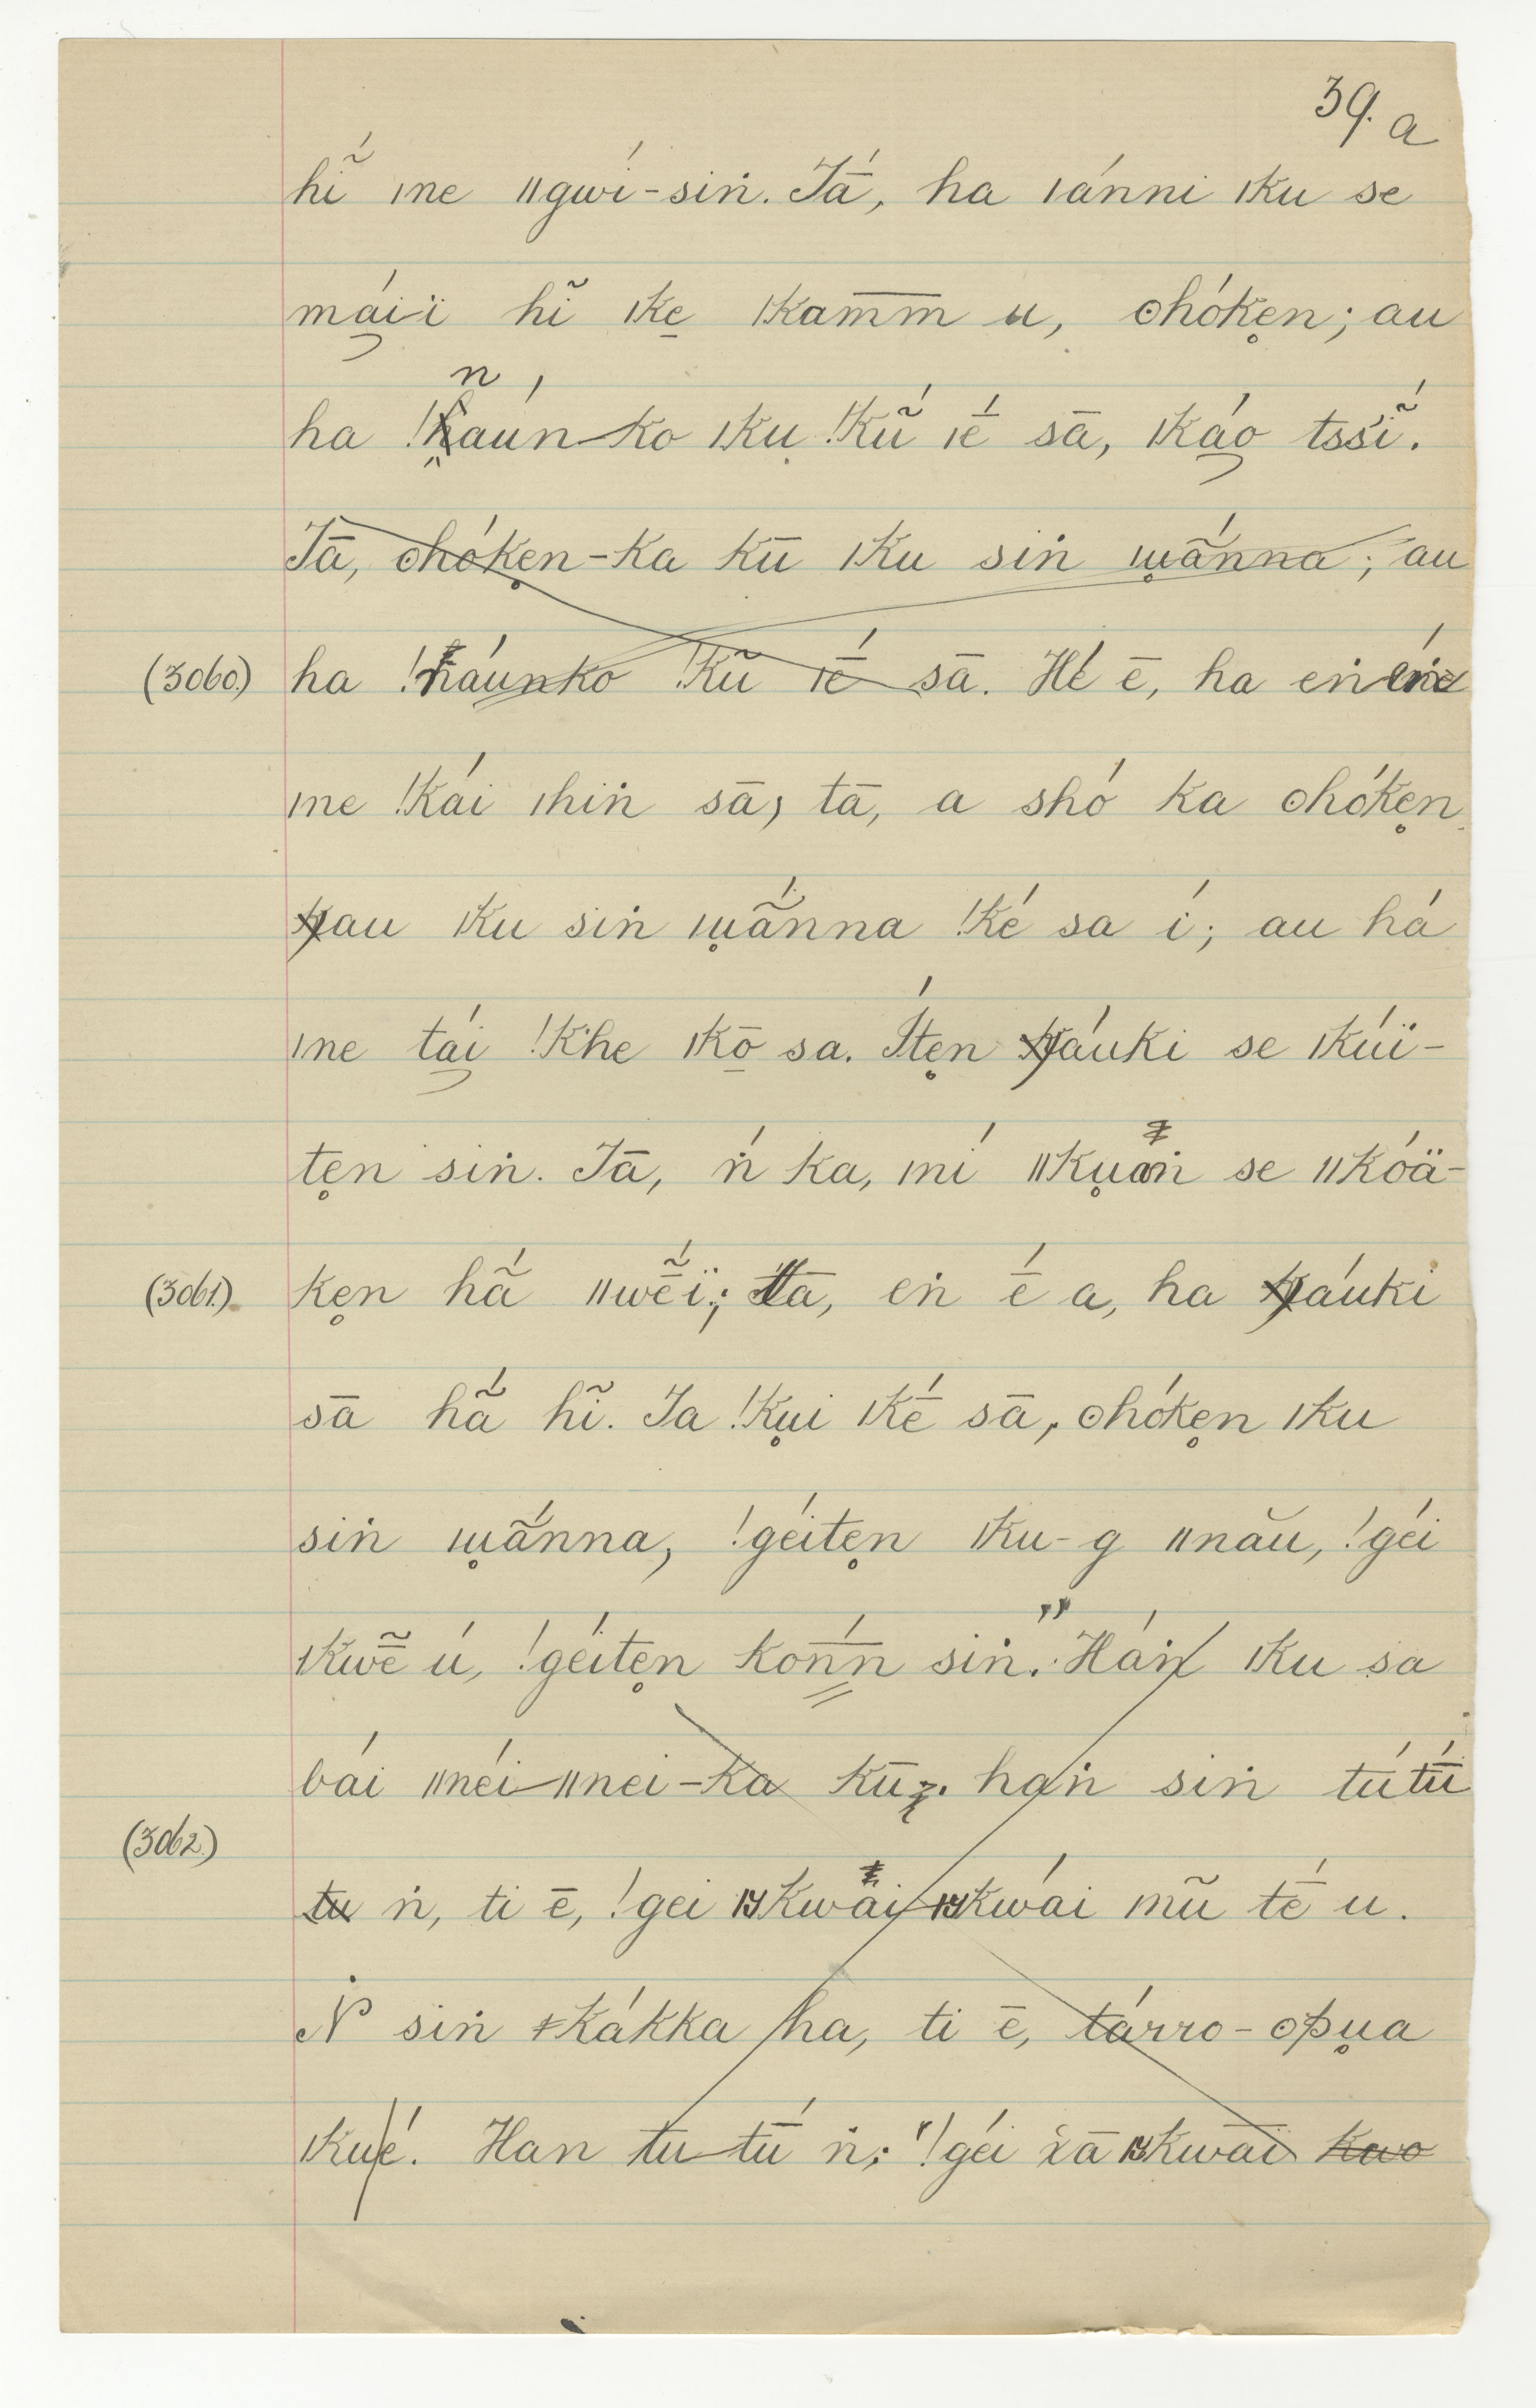 39. a
hĩ́ ǀne ǁgwí-siṅ. Tā́, ha ǀánni ǀku se
mái-ï hĩ ǀke̱ ǀkam̅m̅ u, ʘhókẹn; au
ha !naúń-ko ǀku !kũ ǀḗ sā, ǀkáo tssĩ́.
Tā, ʘhókẹn-ka kū ǀku siṅ ɯ̯ā́nna; au
(3060.) ha !háunko !kũ ǀḗ sā. Hé ē, ha eṅeṅ
ǀne !kái ǀhiṅ sā; tā, a shó ka ʘhókẹn
yau ǀku siṅ ɯ̯ā̃́nna !ké sa í; au há
ǀne tái !khe ǀkō sa. Ítẹn yáuki se ǀkúï-
tẹn siṅ. Tā, ṅ́ ka, ǀní ǁkụaṅ se ǁkóä-
(3061.) kẹn hã́ ǁwḗï; Tā, eṅ ḗ a, ha yáuki
sā hã́ hĩ. Ta !kụi ǀkḗ sā, ʘhókẹn ǀku
siṅ ɯ̯ā́nna, !géitẹn ǀku-g ǁnău, !géi
ǀkwẽ ú, !géitẹn kon̅́n̅ siṅ." Háṅ ǀku sa
bái ǁnéi-ǁnei-ka kū. haṅ siṅ tútú
(3062.) tu ṅ, ti ē, !gei ǀkwãi-ǀkwái mũ tḗ u.
Ṅ siṅ ǂkákka ha, ti ē, tárro-ʘpụa
ǀkué. Han tu-tū́ ṅ; "!géi x̌ā ǀkwāï koo